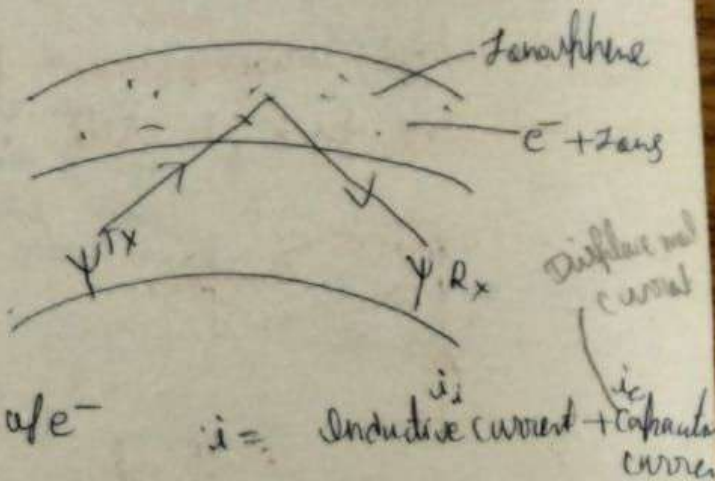 Ionosphere
e⁻ + Ions
Tx
Rx
Displacement
current
of e⁻ i = Inductive current + Capacitat
i_i i_c
curren